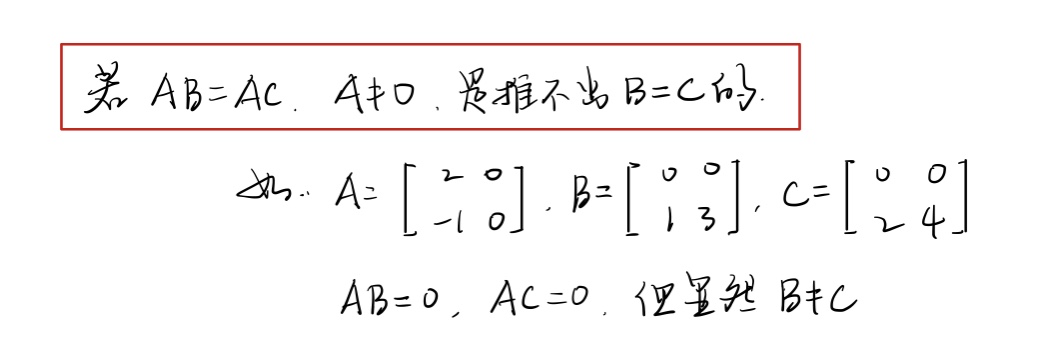 若 AB=AC. A≠0. 是推不出 B=C 的.
如: A=[2 0; -1 0]. B=[0 0; 1 3]. C=[0 0; 2 4]
AB=0, AC=0. 但显然 B≠C